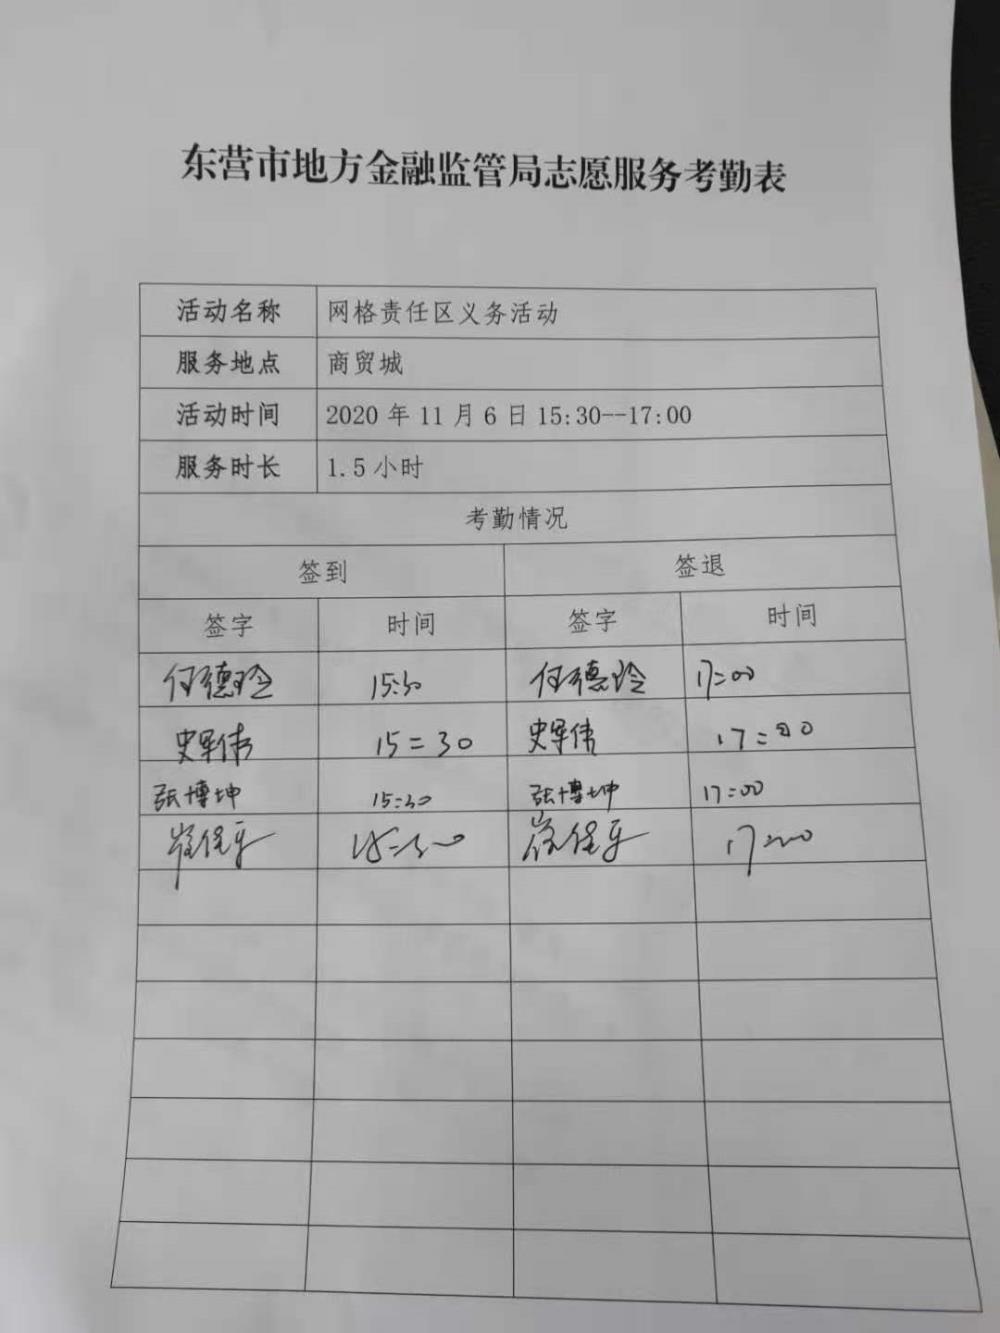 东营市地方金融监管局志愿服务考勤表
活动名称 网格责任区义务活动
服务地点 商贸城
活动时间 2020年11月6日15:30--17:00
服务时长 1.5小时
考勤情况
签到 签退
签字 时间 签字 时间
何德玲 15:30 何德玲 17:00
史军伟 15:30 史军伟 17:00
张博坤 15:30 张博坤 17:00
崔 15:30 崔 17:00